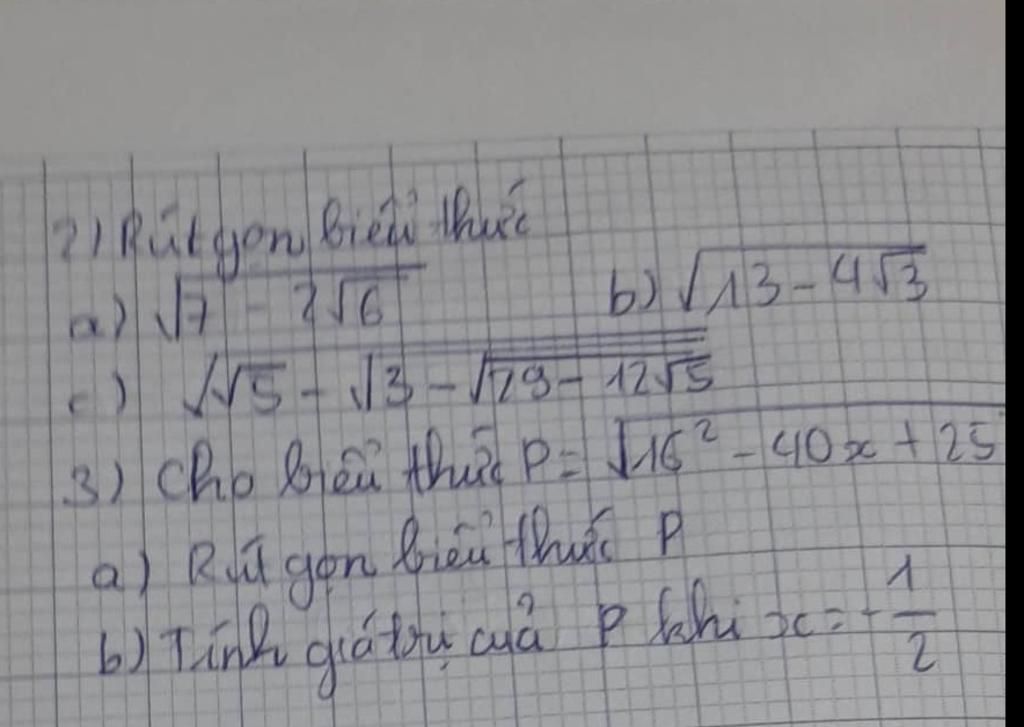 2) Rút gọn biểu thức
a) √7 - 2√6 b) √13 - 4√3
c) √√5 - √3 - √29 - 12√5
3) Cho biểu thức P = √16² - 40x + 25
a) Rút gọn biểu thức P
b) Tính giá trị của P khi x = - 1/2